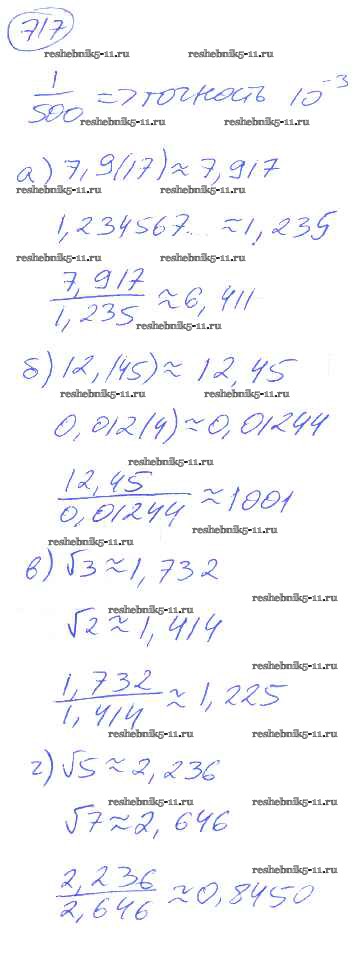 717
reshebnik5-11.ru reshebnik5-11.ru
1/500 => точность 10^-3
reshebnik5-11.ru reshebnik5-11.ru
а) 7,9(17) ≈ 7,917
reshebnik5-11.ru reshebnik5-11.ru
1,234567... ≈ 1,235
reshebnik5-11.ru reshebnik5-11.ru
7,917/1,235 ≈ 6,411
reshebnik5-11.ru
б) 12,(45) ≈ 12,45
reshebnik5-11.ru reshebnik5-11.ru
0,012(4) ≈ 0,01244
reshebnik5-11.ru
12,45/0,01244 ≈ 1001
reshebnik5-11.ru
reshebnik5-11.ru
в) √3 ≈ 1,732
reshebnik5-11.ru
reshebnik5-11.ru
√2 ≈ 1,414
reshebnik5-11.ru
1,732/1,414 ≈ 1,225
reshebnik5-11.ru reshebnik5-11.ru
г) √5 ≈ 2,236
reshebnik5-11.ru reshebnik5-11.ru
√7 ≈ 2,646
reshebnik5-11.ru
2,236/2,646 ≈ 0,8450
reshebnik5-11.ru reshebnik5-11.ru